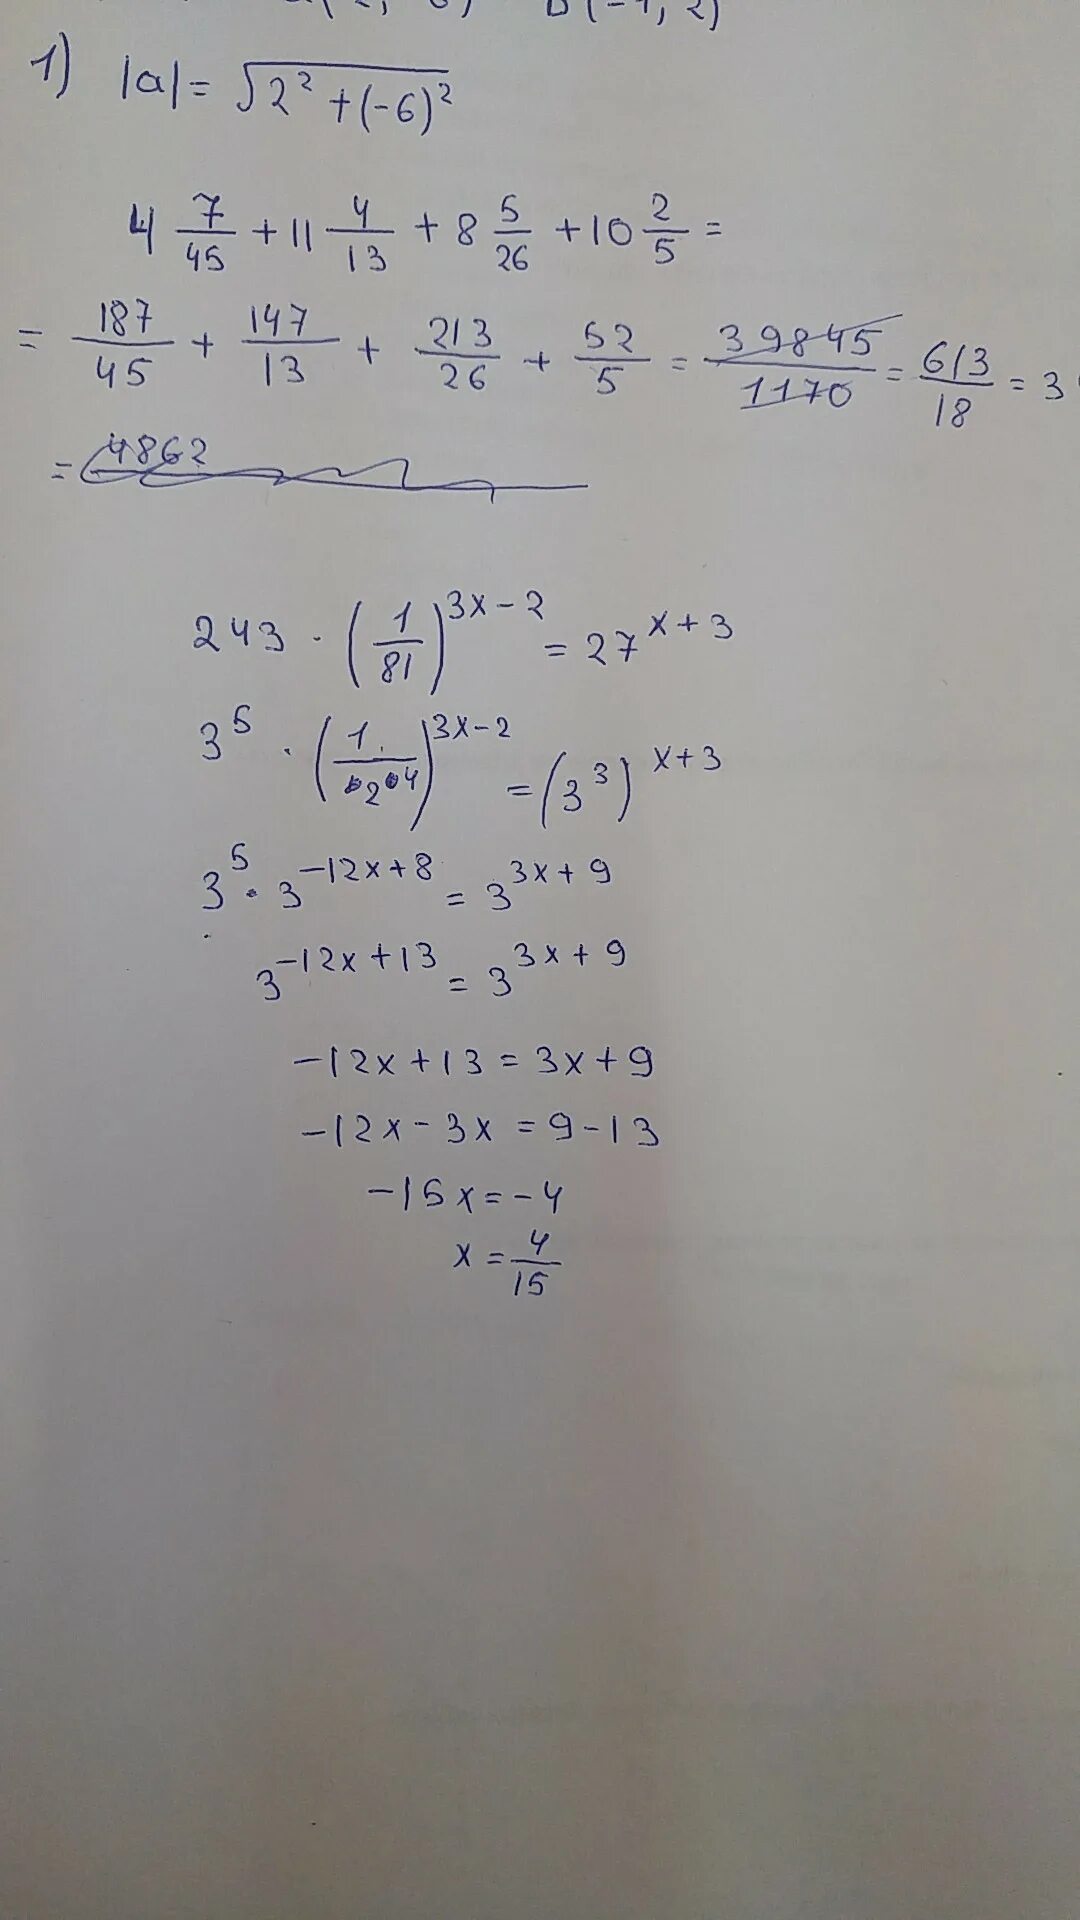 B(-4, 2)
1) |a| = √(2² + (-6)²)
4 7/45 + 11 4/13 + 8 5/26 + 10 2/5 =
= 187/45 + 147/13 + 213/26 + 52/5 = 39845/1170 = 613/18 = 3
= 4862
243 · (1/81)^(3x-2) = 27^(x+3)
3^5 · (1/2^4)^(3x-2) = (3^3)^(x+3)
3^5 · 3^(-12x+8) = 3^(3x+9)
3^(-12x+13) = 3^(3x+9)
-12x + 13 = 3x + 9
-12x - 3x = 9 - 13
-15x = -4
x = 4/15